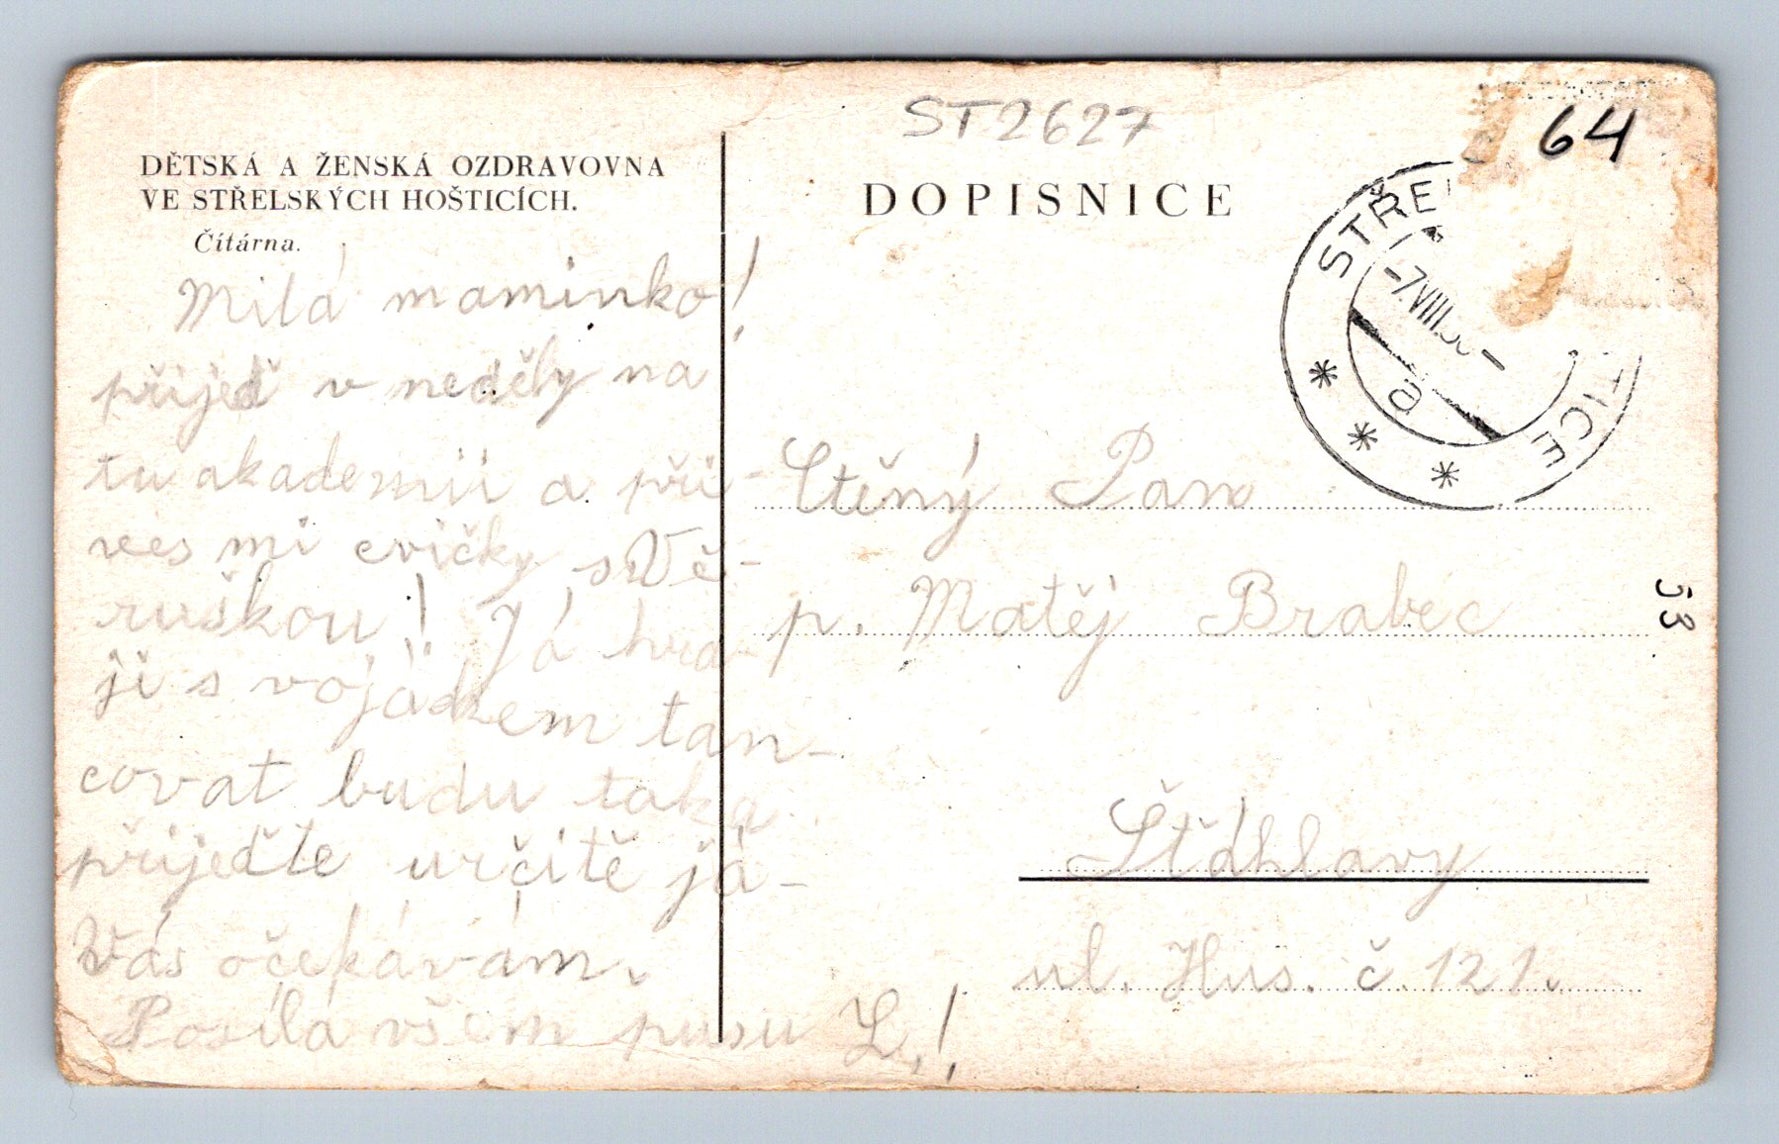 ST2627
64
DĚTSKÁ A ŽENSKÁ OZDRAVOVNA
VE STŘELSKÝCH HOŠTICÍCH.
Čítárna.
DOPISNICE
STŘE TICE
-7.VIII.3 -
a
Milá maminko!
přijeď v neděly na
tu akademii a při-
nes mi cvičky s Vě-
ruškou! Já hra-
ji s vojádkem tan-
covat budu taka
přijeďte určitě já-
Vás očekávám.
Posílá všem pusu L.!
Ctěný Pan
p. Matěj Brabec
Šťáhlavy
ul. Hus. č. 121.
53